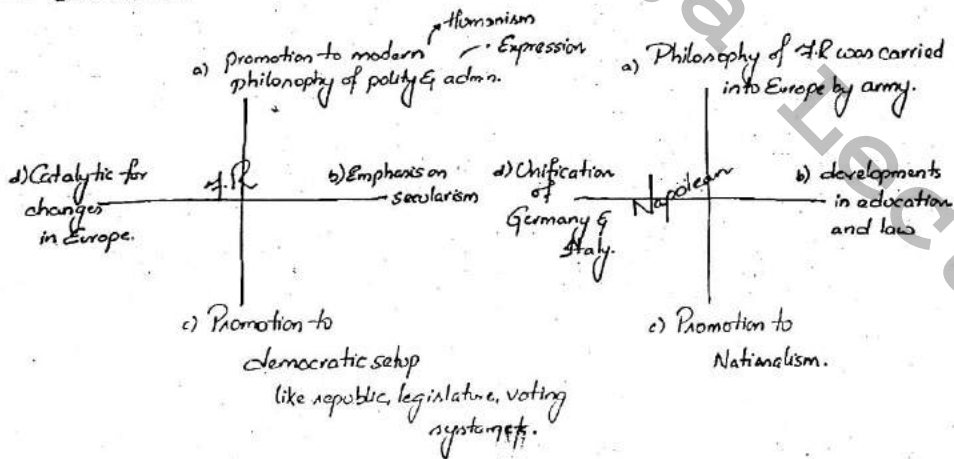 Humanism
a) promotion to modern
Expression
philosophy of polity & admn.
d) Catalytic for
changes
in Europe.
F.R
b) Emphasis on
secularism
c) Promotion to
democratic setup
like republic, legislature, voting
system etc.
a) Philosophy of F.R was carried
into Europe by army.
d) Unification
of
Germany &
Italy.
Napolean
b) developments
in education
and law
c) Promotion to
Nationalism.